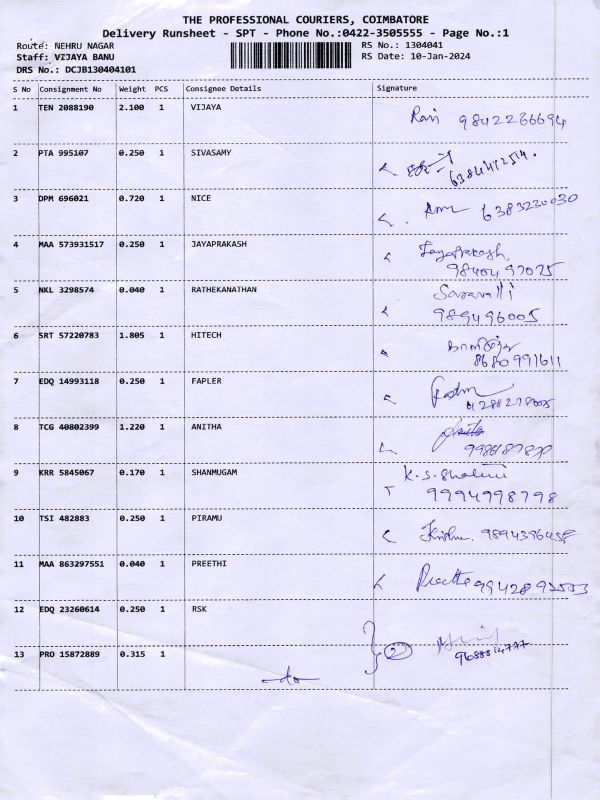 THE PROFESSIONAL COURIERS, COIMBATORE
Delivery Runsheet - SPT - Phone No.:0422-3505555 - Page No.:1
Route: NEHRU NAGAR RS No.: 1304041
Staff: VIJAYA BANU RS Date: 10-Jan-2024
DRS No.: DCJB130404101
S No Consignment No Weight PCS Consignee Details Signature
1 TEN 2088190 2.100 1 VIJAYA Ravi 9842266694
2 PTA 995107 0.250 1 SIVASAMY
3 DPM 696021 0.720 1 NICE 6383220030
4 MAA 573931517 0.250 1 JAYAPRAKASH Jayaprakash
5 NKL 3298574 0.040 1 RATHEKANATHAN
989496005
6 SRT 57220783 1.805 1 HITECH
8680991611
7 EDQ 14993118 0.250 1 FAPLER
8 TCG 40802399 1.220 1 ANITHA
9 KRR 5845067 0.170 1 SHANMUGAM K.S.Shalini
9994998798
10 TSI 482883 0.250 1 PIRAMU
11 MAA 863297551 0.040 1 PREETHI
12 EDQ 23260614 0.250 1 RSK
2
13 PRO 15872889 0.315 1